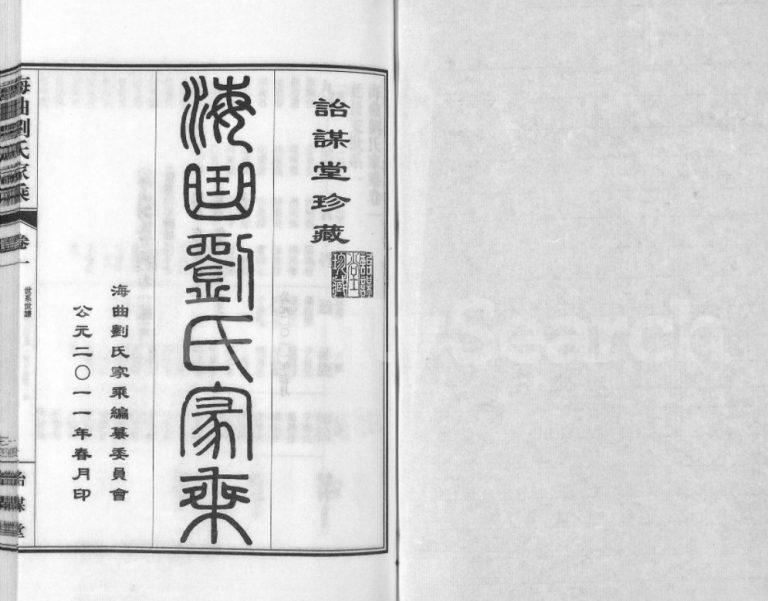 詒謀堂珍藏
詒謀堂珍藏
海曲劉氏家乘
海曲劉氏家乘編纂委員會
公元二〇一一年春月印
海曲劉氏家乘
卷一
世系世譜
詒謀堂
Search